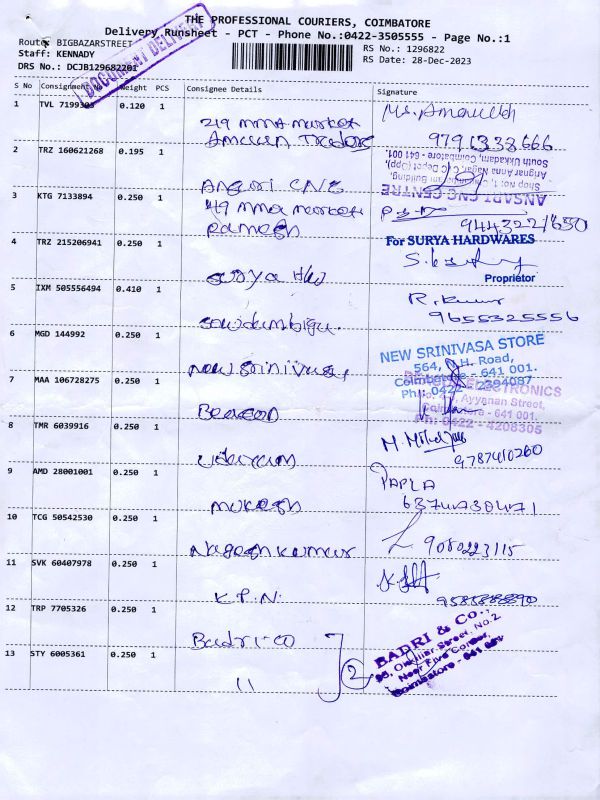 THE PROFESSIONAL COURIERS, COIMBATORE
Delivery Runsheet - PCT - Phone No.:0422-3505555 - Page No.:1
Route: BIGBAZARSTREET
RS No.: 1296822
Staff: KENNADY
RS Date: 28-Dec-2023
DRS No.: DCJB129682201
DOCUMENT DELIVERY
S No Consignment No Weight PCS Consignee Details Signature
1 TVL 7199303 0.120 1
219 mma market
9791333666
2 TRZ 160621268 0.195 1
Ansari CNC
ANSARI CNC CENTRE
South Ukkadam, Coimbatore - 641 001.
3 KTG 7133894 0.250 1
49 mma market
Ramesh
9443221650
4 TRZ 215206941 0.250 1
Surya Hw
For SURYA HARDWARES
Proprietor
5 IXM 505556494 0.410 1
R. Kumar
9655325556
6 MGD 144992 0.250 1
New Srinivasa
NEW SRINIVASA STORE
564, N.H. Road,
Coimbatore - 641 001.
Ph: 0422 - 2394087
7 MAA 106728275 0.250 1
Beacon
ELECTRONICS
Ayyanan Street,
Coimbatore - 641 001.
Ph: 0422 - 4208305
8 TMR 6039916 0.250 1
Udayam
9787410260
9 AMD 28001001 0.250 1
Mukesh
PAPLA
6374730471
10 TCG 50542530 0.250 1
Nageshkumar
9080223115
11 SVK 60407978 0.250 1
K.P.N.
9585888890
12 TRP 7705326 0.250 1
Badri-co
BADRI & Co.,
Street, No.2
Near Five Corner,
Coimbatore - 641 001
13 STY 6005361 0.250 1
11
2